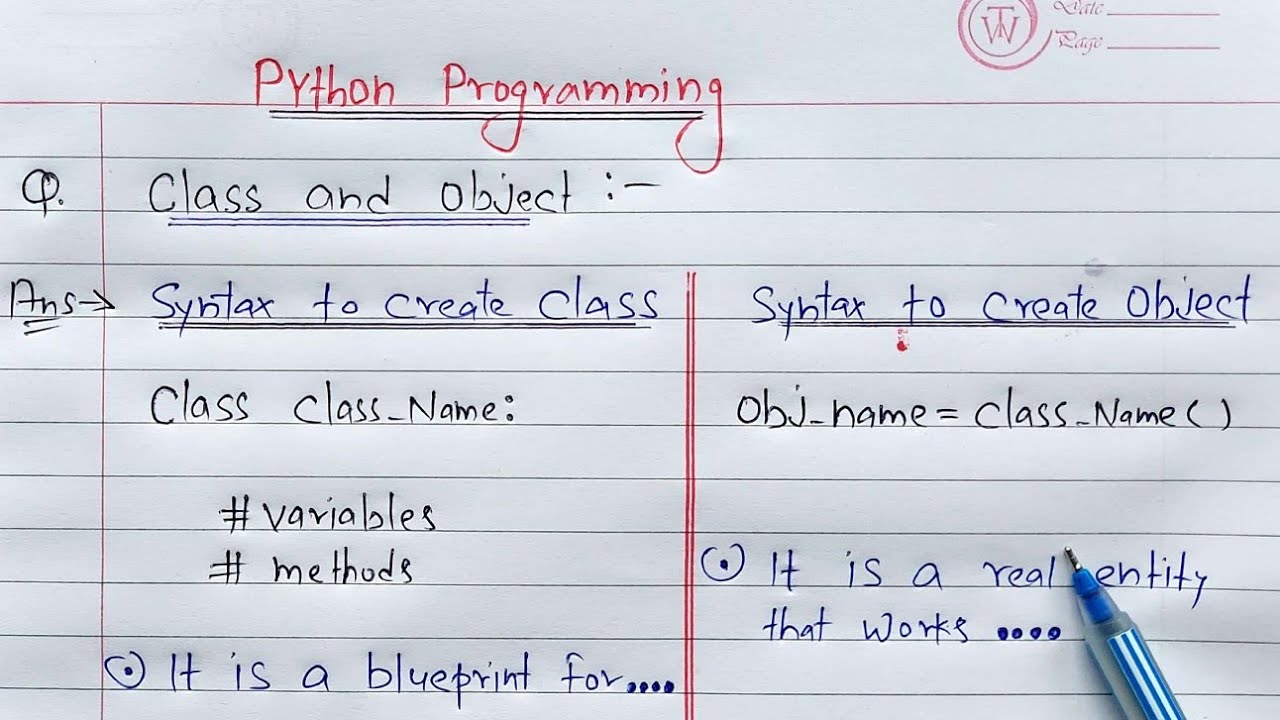 Date
Page
Python Programming
Q. Class and Object :-
Ans→ Syntax to Create Class
Class Class_Name:
# variables
# methods
⊙ It is a blueprint for....
Syntax to Create Object
Obj_name = Class_Name()
⊙ It is a real entity
that works ....